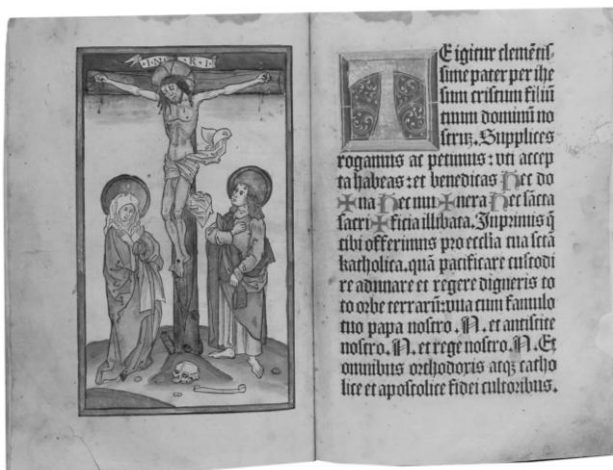 ·I·N·R·I·
TE igitur clemētis-
sime pater per ihe
sum cristum filiū
tuum dominū no
strū. Supplices
rogamus ac petimus: vti accep
ta habeas: et benedicas Hec do
✠na Hec mu✠nera Hec sācta
sacri✠ficia illibata. Inprimis q̄
tibi offerimus pro ecclīa tua sctā
katholica. quā pacificare custodi
re adunare et regere digneris to
to orbe terrarū: vna cum famulo
tuo papa nostro. N. et antistite
nostro. N. et rege nostro. N. Et
omnibus orthodoxis atqȝ catho
lice et apostolice fidei cultoribus.